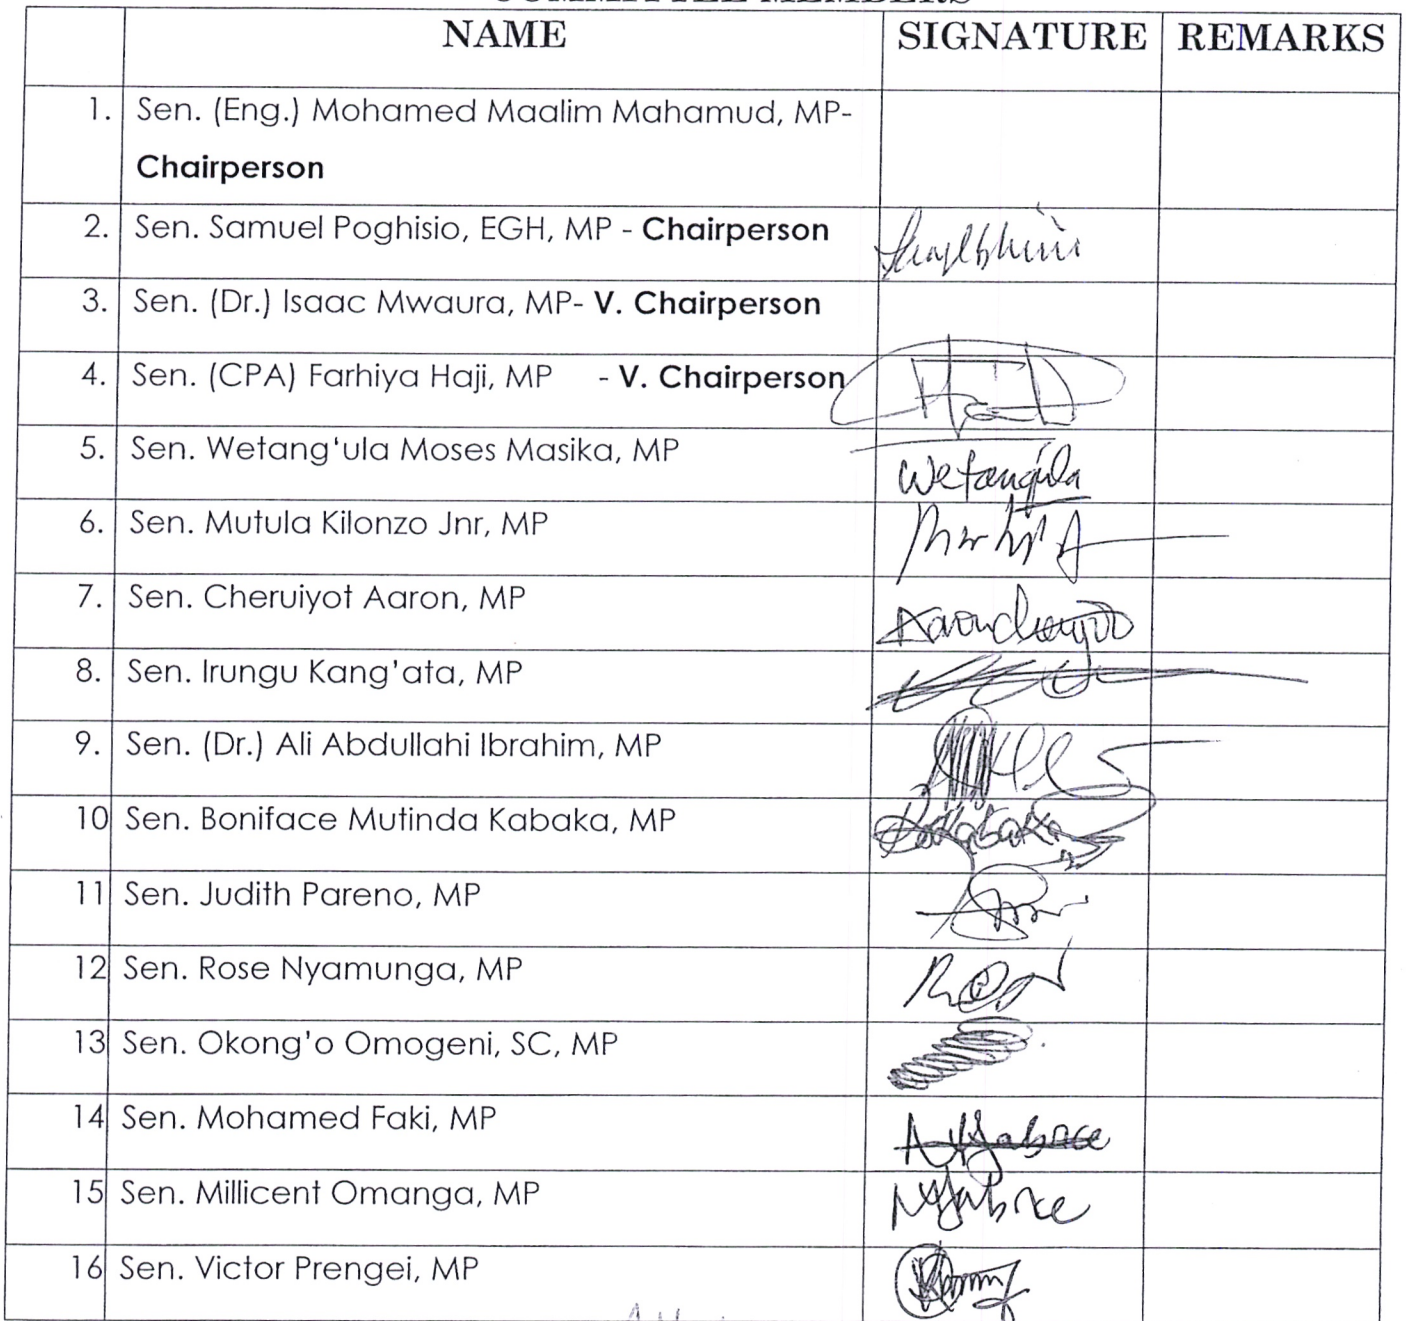 COMMITTEE MEMBERS
NAME SIGNATURE REMARKS
1. Sen. (Eng.) Mohamed Maalim Mahamud, MP-
Chairperson
2. Sen. Samuel Poghisio, EGH, MP - Chairperson
3. Sen. (Dr.) Isaac Mwaura, MP- V. Chairperson
4. Sen. (CPA) Farhiya Haji, MP - V. Chairperson
5. Sen. Wetang'ula Moses Masika, MP Wetangula
6. Sen. Mutula Kilonzo Jnr, MP
7. Sen. Cheruiyot Aaron, MP
8. Sen. Irungu Kang'ata, MP
9. Sen. (Dr.) Ali Abdullahi Ibrahim, MP
10 Sen. Boniface Mutinda Kabaka, MP
11 Sen. Judith Pareno, MP
12 Sen. Rose Nyamunga, MP
13 Sen. Okong'o Omogeni, SC, MP
14 Sen. Mohamed Faki, MP
15 Sen. Millicent Omanga, MP
16 Sen. Victor Prengei, MP